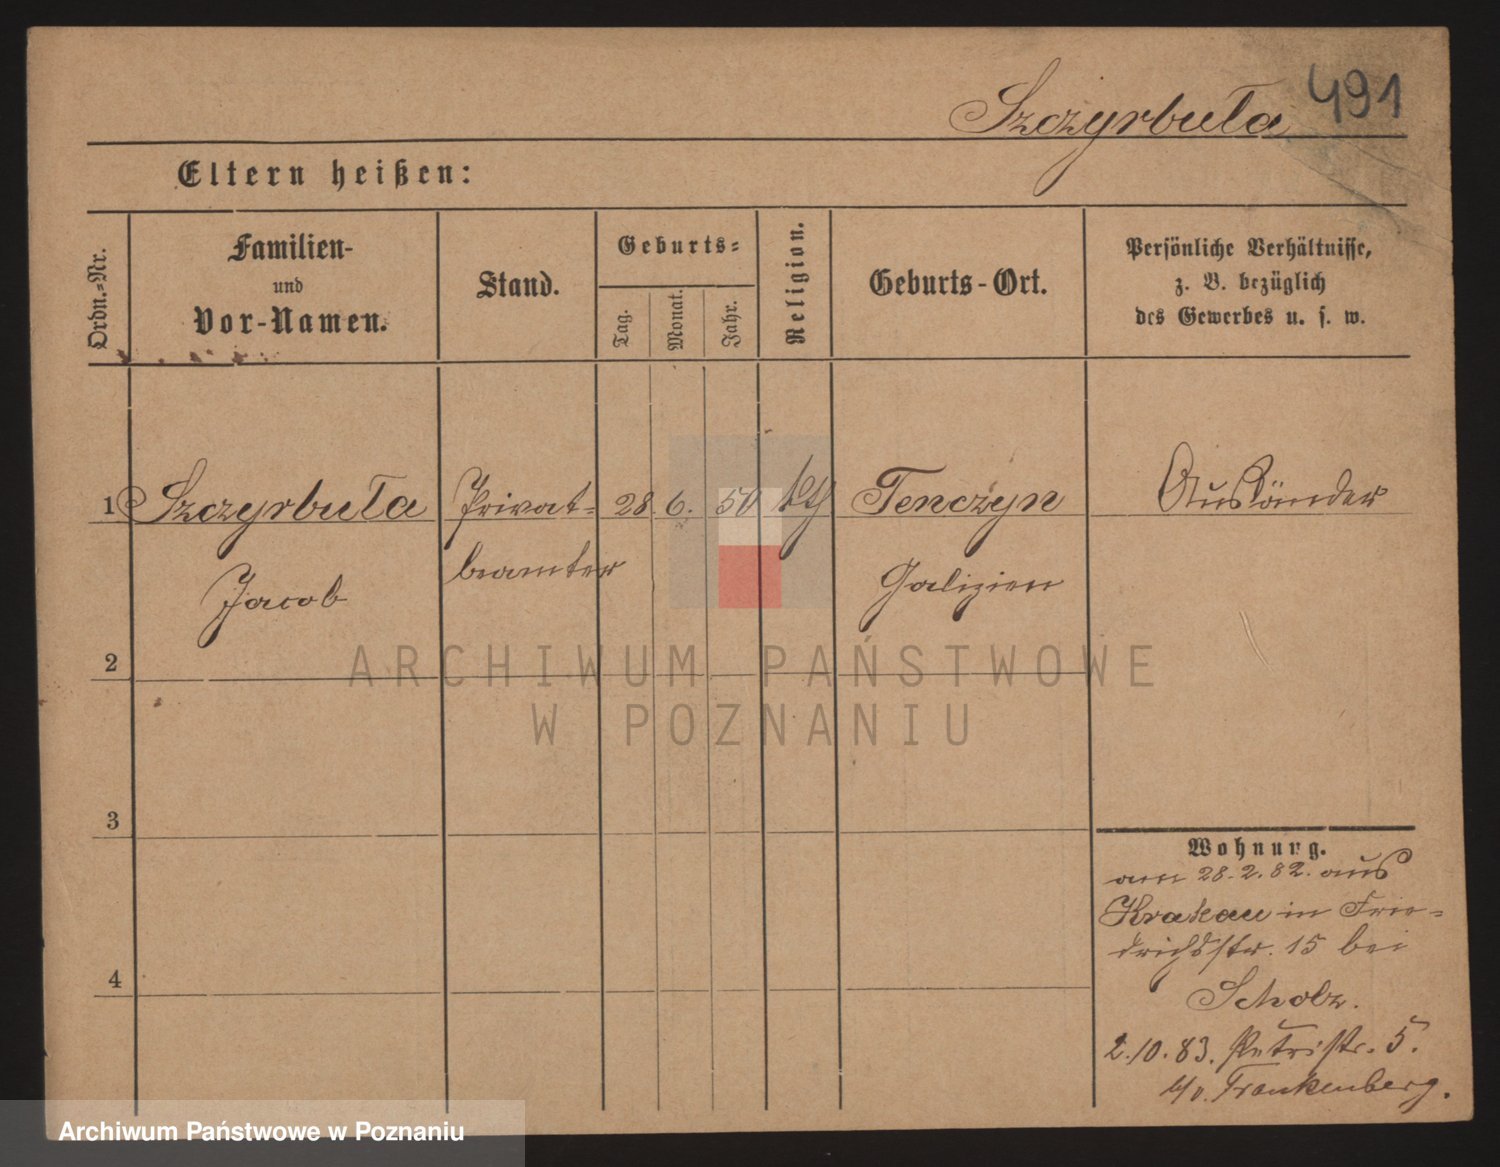 Szczyrbuła 491
Eltern heißen:
Ordn.-Nr.
Familien-
und
Vor-Namen.
Stand.
Geburts-
Tag.
Monat.
Jahr.
Religion.
Geburts-Ort.
Persönliche Verhältnisse,
z. B. bezüglich
des Gewerbes u. s. w.
1 Szczyrbuła Privat- 28. 6. 50 kth Tenczyn Ausländer
Jacob beamter Galizien
2
3
4
Wohnung.
am 28.2.82. aus
Krakau in Frie-
drichstr. 15 bei
Scholz.
2.10.83. Petristr. 5.
b/v. Frankenberg.
ARCHIWUM PAŃSTWOWE
W POZNANIU
Archiwum Państwowe w Poznaniu